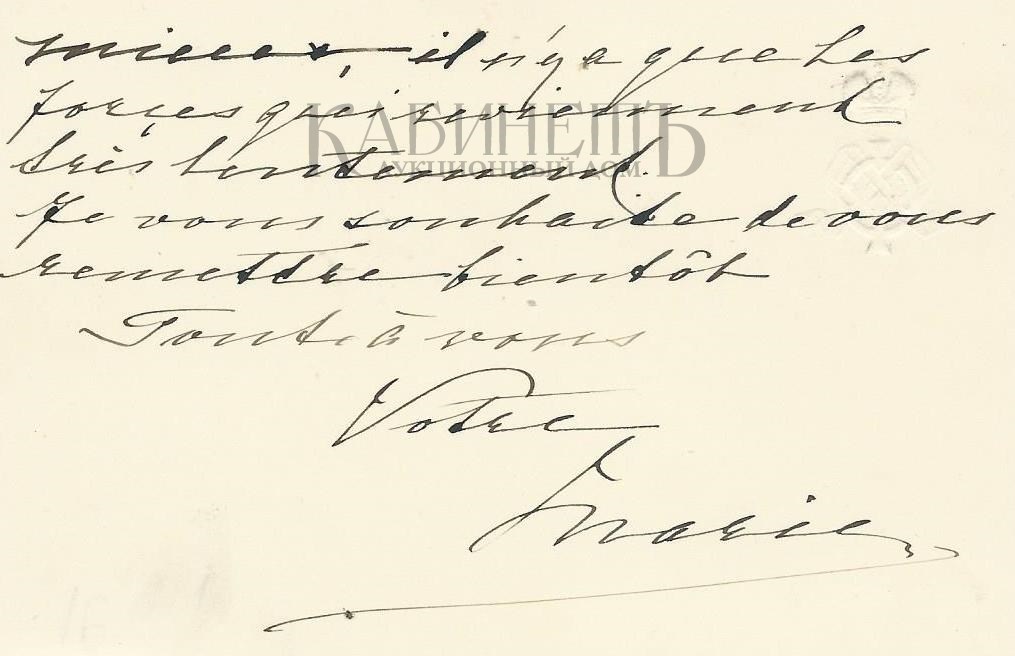 mieux, il n'y a que les
forces qui reviennent
très lentement.
Je vous souhaite de vous
remettre bientôt
Toute à vous
Votre
Marie
КАБИНЕТЪ
АУКЦИОННЫЙ ДОМ